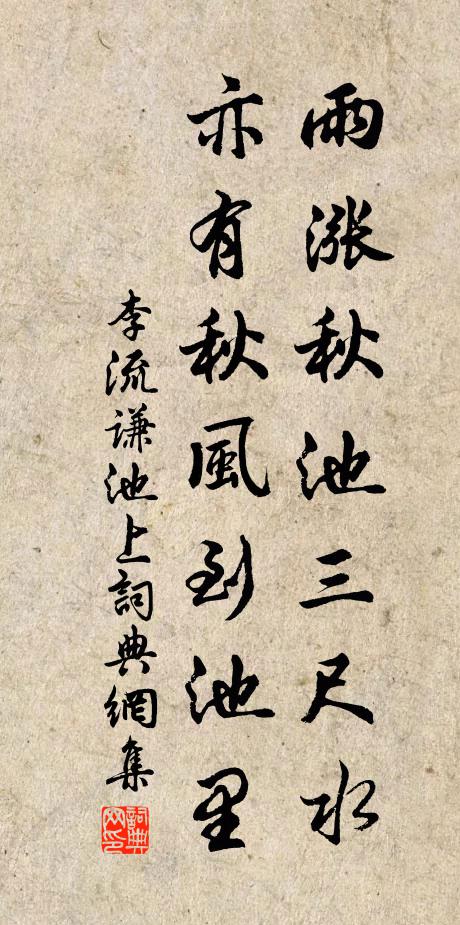 雨漲秋池三尺水
亦有秋風到池里
李流謙池上詞典網集
詞典網印